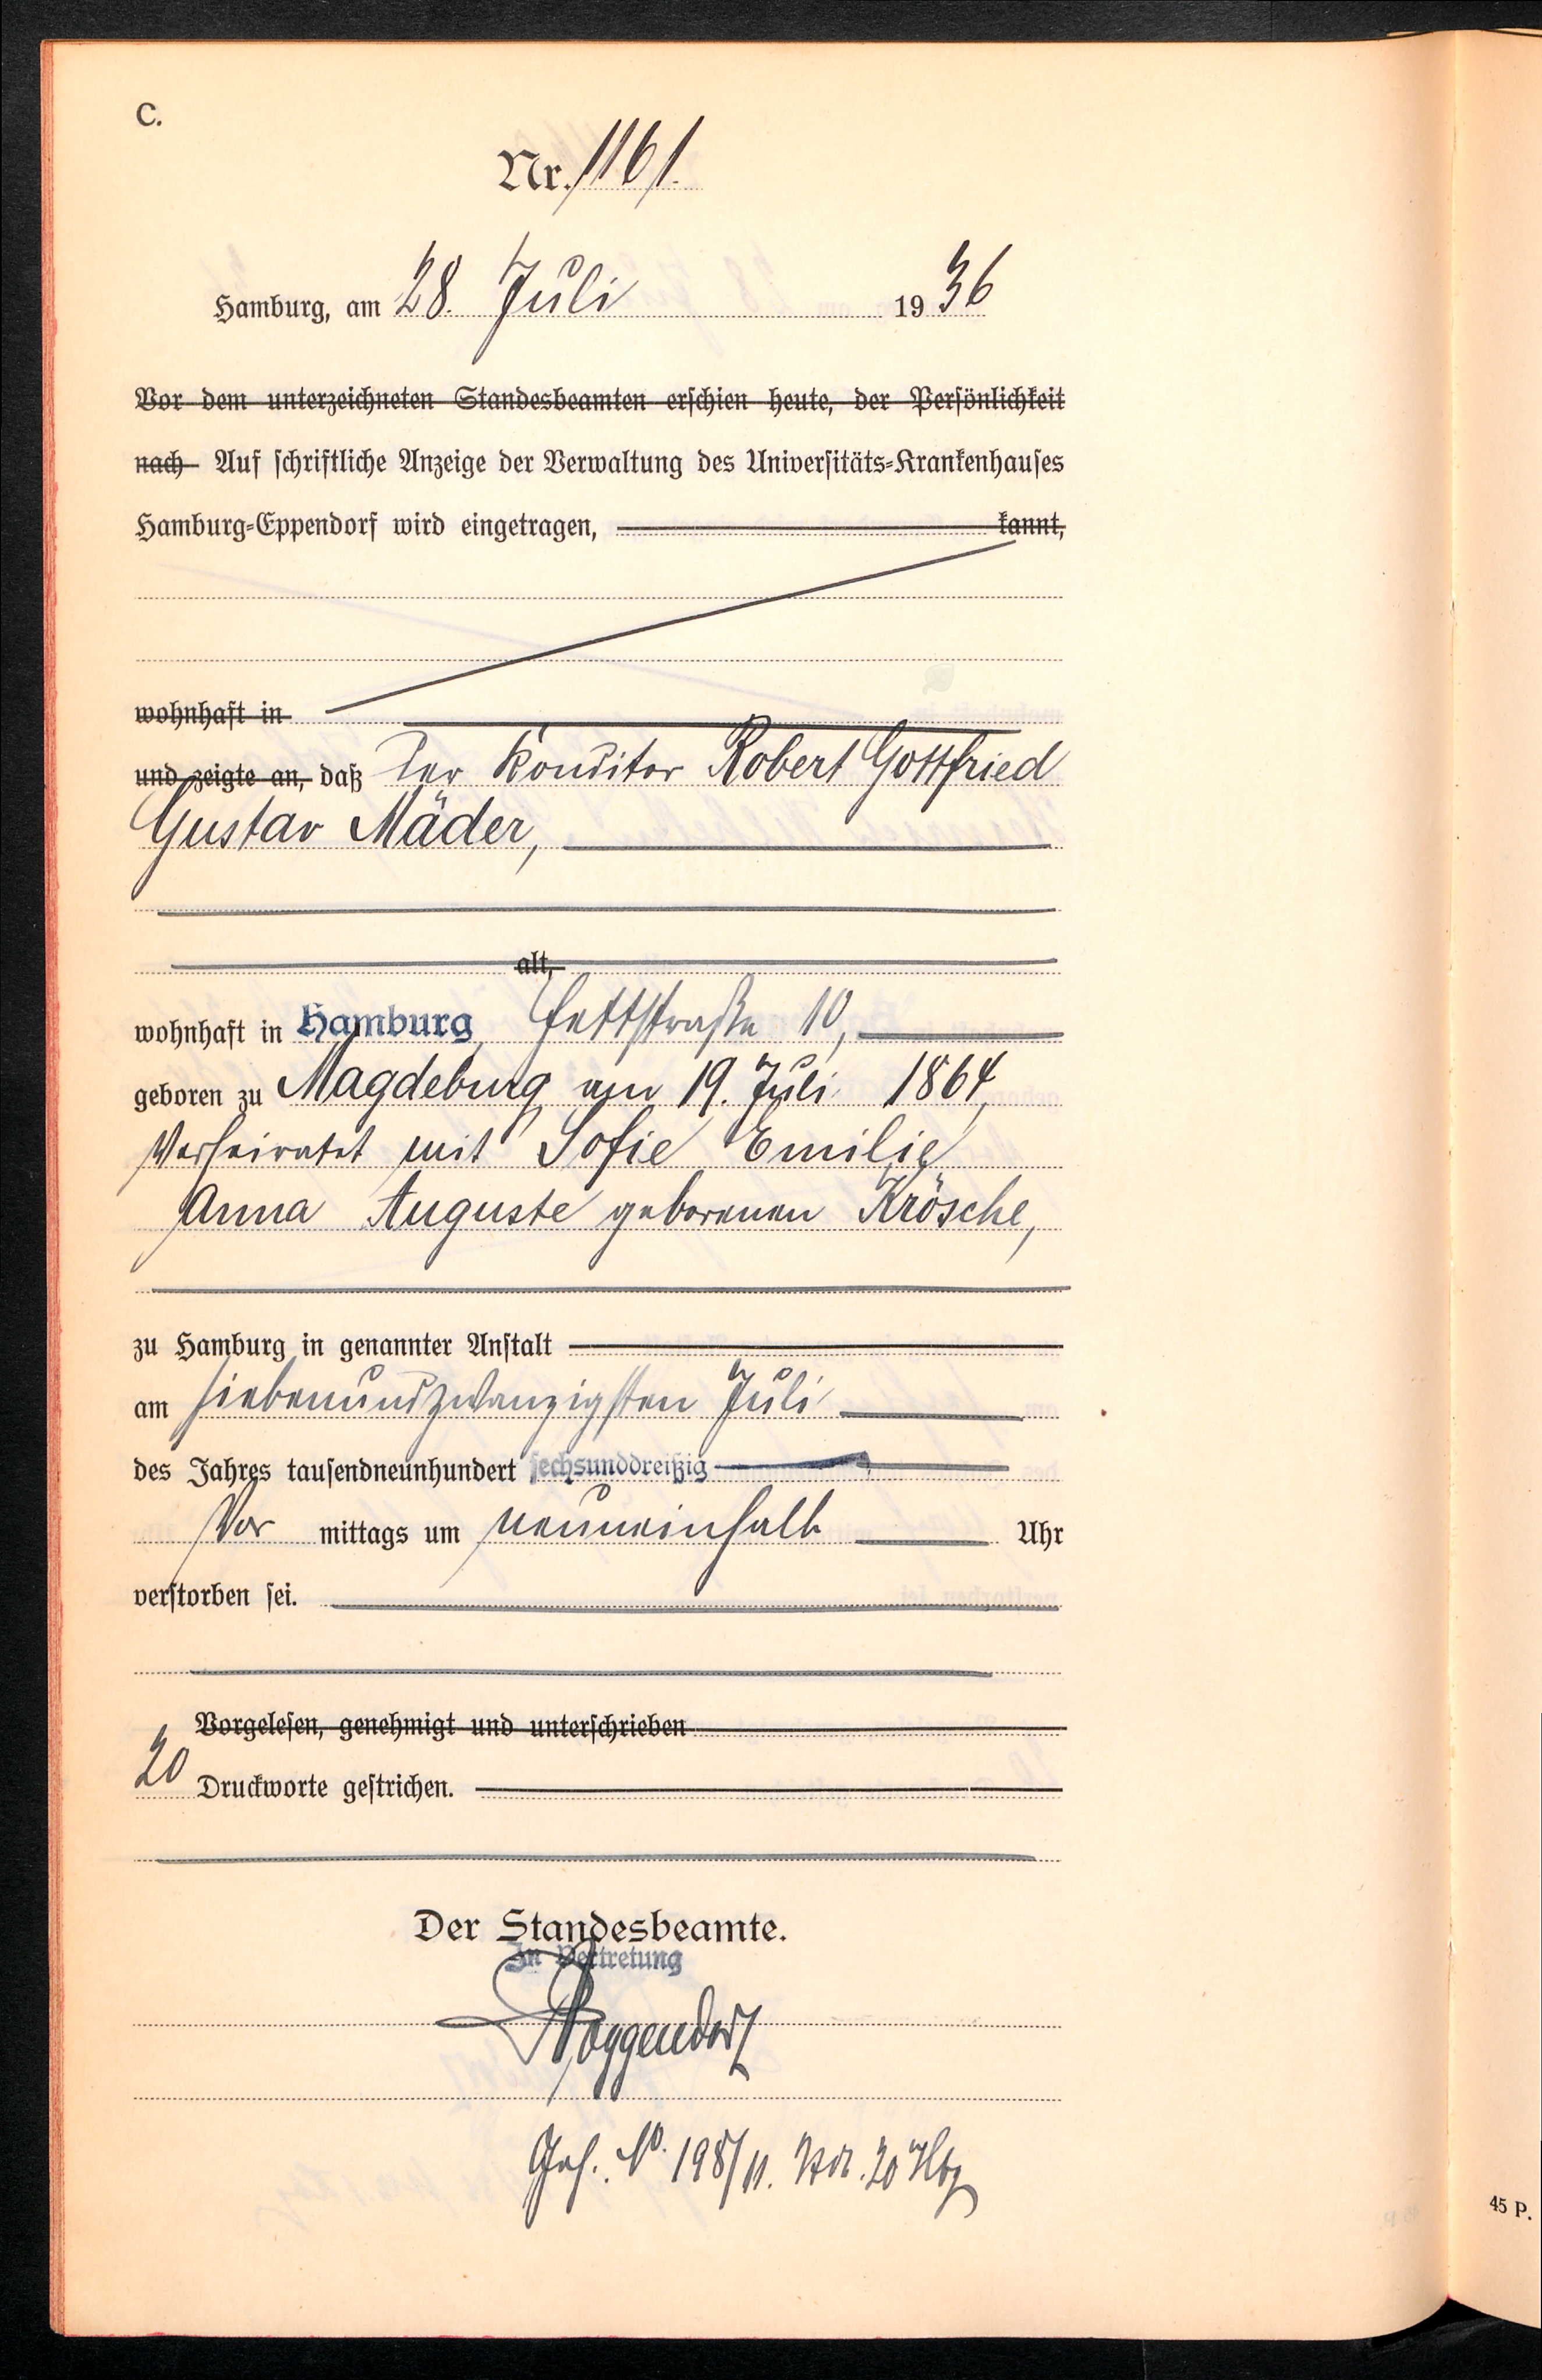 C.
Nr. 1161.
Hamburg, am 28. Juli 1936
Vor dem unterzeichneten Standesbeamten erschien heute, der Persönlichkeit
nach Auf schriftliche Anzeige der Verwaltung des Universitäts-Krankenhauses
Hamburg-Eppendorf wird eingetragen, kannt,
wohnhaft in
und zeigte an, daß der Konditor Robert Gottfried
Gustav Mäder,
alt,
wohnhaft in Hamburg, Fettstraße 10,
geboren zu Magdeburg am 19. Juli 1864,
verheiratet mit Sofie Emilie
Anna Auguste geborenen Krösche,
zu Hamburg in genannter Anstalt
am siebenundzwanzigsten Juli
des Jahres tausendneunhundert sechsunddreißig
Vor mittags um neuneinhalb Uhr
verstorben sei.
Vorgelesen, genehmigt und unterschrieben
20 Druckworte gestrichen.
Der Standesbeamte.
In Vertretung
Roggendorf
No. 198/11. 20 Hbg
45 P.